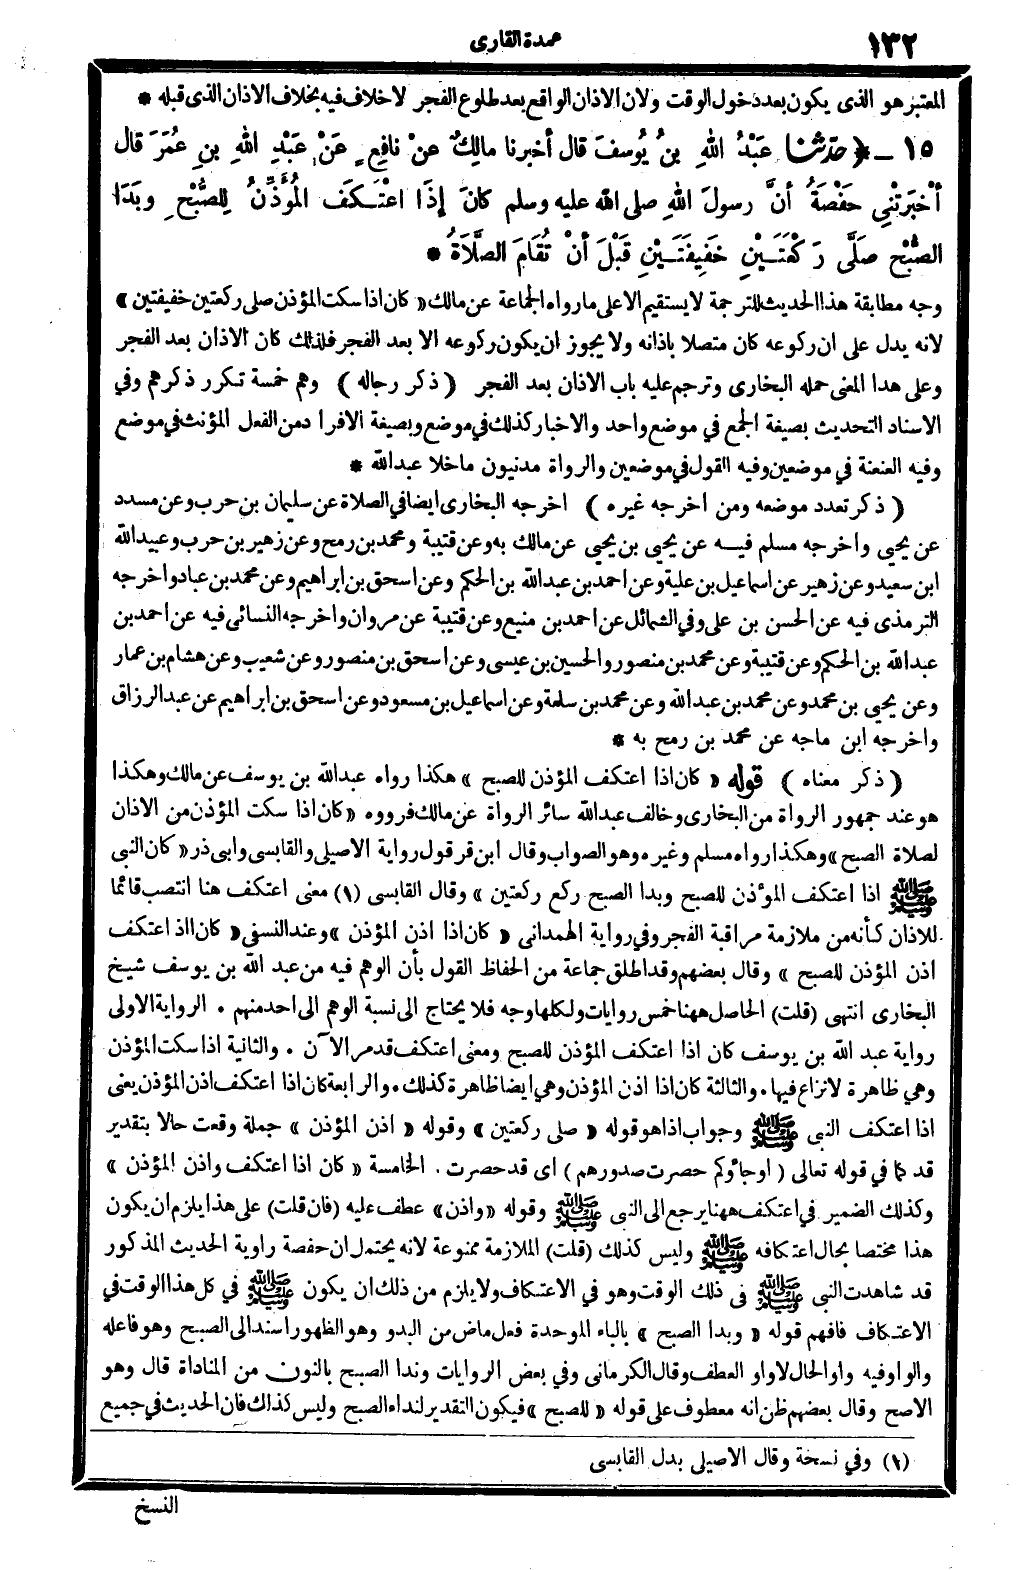 ١٣٢
عمدة القارى
المعتبر هو الذى يكون بعد دخول الوقت ولان الاذان الواقع بعد طلوع الفجر لا خلاف فيه بخلاف الاذان الذى قبله *
١٥ ـ ﴿ حدّثنا عَبْدُ اللهِ بنُ يُوسفَ قال أخبرنا مالِكٌ عنْ نافِعٍ عَنْ عَبْدِ اللهِ بنِ عُمَرَ قال
أخْبَرَتْنِي حَفْصَةُ أنَّ رسولَ اللهِ صلى الله عليه وسلم كانَ إذَا اعْتَكَفَ المُؤَذِّنُ لِلصُّبْحِ وبَدَا
الصُّبْحُ صَلَّى رَكْعَتَيْنِ خَفِيفَتَيْنِ قَبْلَ أنْ تُقَامَ الصَّلَاةُ *
وجه مطابقة هذا الحديث للترجمة لا يستقيم الا على ما رواه الجماعة عن مالك « كان اذا سكت المؤذن صلى ركعتين خفيفتين »
لانه يدل على ان ركوعه كان متصلا باذانه ولا يجوز ان يكون ركوعه الا بعد الفجر فلذلك كان الاذان بعد الفجر
وعلى هدا المعنى حمله البخارى وترجم عليه باب الاذان بعد الفجر ( ذكر رجاله ) وهم خمسة تكرر ذكرهم وفي
الاسناد التحديث بصيغة الجمع في موضع واحد والاخبار كذلك في موضع وبصيغة الافرا دمن الفعل المؤنث في موضع
وفيه العنعنة في موضعين وفيه القول في موضعين والرواة مدنيون ما خلا عبد الله *
( ذكر تعدد موضعه ومن اخرجه غيره ) اخرجه البخارى ايضا في الصلاة عن سليمان بن حرب وعن مسدد
عن يحيي واخرجه مسلم فيه عن يحيي بن يحيي عن مالك به وعن قتيبة ومحمد بن رمح وعن زهير بن حرب وعبيد الله
ابن سعيد وعن زهير عن اسماعيل بن علية وعن احمد بن عبد الله بن الحكم وعن اسحق بن ابراهيم وعن محمد بن عباد واخرجه
الترمذى فيه عن الحسن بن على وفي الشمائل عن احمد بن منيع وعن قتيبة عن مروان واخرجه النسائى فيه عن احمد بن
عبد الله بن الحكم وعن قتيبة وعن محمد بن منصور والحسين بن عيسى وعن اسحق بن منصور وعن شعيب وعن هشام بن عمار
وعن يحيي بن محمد وعن محمد بن عبد الله وعن محمد بن سلمة وعن اسماعيل بن مسعود وعن اسحق بن ابراهيم عن عبد الرزاق
واخرجه ابن ماجه عن محمد بن رمح به *
( ذكر معناه ) قوله « كان اذا اعتكف المؤذن للصبح » هكذا رواه عبد الله بن يوسف عن مالك وهكذا
هو عند جمهور الرواة من البخارى وخالف عبد الله سائر الرواة عن مالك فرووه « كان اذا سكت المؤذن من الاذان
لصلاة الصبح » وهكذا رواه مسلم وغيره وهو الصواب وقال ابن قرقول رواية الاصيلى والقابسى وابى ذر « كان النبى
ﷺ اذا اعتكف المؤذن للصبح وبدا الصبح ركع ركعتين » وقال القابسى (١) معنى اعتكف هنا انتصب قائما
للاذان كأنه من ملازمة مراقبة الفجر وفي رواية الهمدانى « كان اذا اذن المؤذن » وعند النسفى « كان ااذ اعتكف
اذن المؤذن للصبح » وقال بعضهم وقد اطلق جماعة من الحفاظ القول بأن الوهم فيه من عبد الله بن يوسف شيخ
البخارى انتهى (قلت) الحاصل ههنا خمس روايات ولكلها وجه فلا يحتاج الى نسبة الوهم الى احد منهم . الرواية الاولى
رواية عبد الله بن يوسف كان اذا اعتكف المؤذن للصبح ومعنى اعتكف قد مر الآن . والثانية اذا سكت المؤذن
وهي ظاهرة لا نزاع فيها . والثالثة كان اذا اذن المؤذن وهي ايضا ظاهرة كذلك . والرابعة كان اذا اعتكف اذن المؤذن يعنى
اذا اعتكف النبى ﷺ وجواب اذا هو قوله « صلى ركعتين » وقوله « اذن المؤذن » جملة وقعت حالا بتقدير
قد كما في قوله تعالى ( اوجاؤكم حصرت صدورهم ) اى قد حصرت . الخامسة « كان اذا اعتكف واذن المؤذن »
وكذلك الضمير في اعتكف ههنا يرجع الى النبى ﷺ وقوله « واذن » عطف عليه (فان قلت) على هذا يلزم ان يكون
هذا مختصا بحال اعتكافه ﷺ وليس كذلك (قلت) الملازمة ممنوعة لانه يحتمل ان حفصة راوية الحديث المذكور
قد شاهدت النبى ﷺ فى ذلك الوقت وهو في الاعتكاف ولا يلزم من ذلك ان يكون ﷺ في كل هذا الوقت في
الاعتكاف فافهم قوله « وبدا الصبح » بالباء الموحدة فعل ماض من البدو وهو الظهور اسند الى الصبح وهو فاعله
والواو فيه واو الحال لا واو العطف وقال الكرمانى وفي بعض الروايات وندا الصبح بالنون من المناداة قال وهو
الاصح وقال بعضهم ظن انه معطوف على قوله « للصبح » فيكون التقدير لنداء الصبح وليس كذلك فان الحديث في جميع
(١) وفي نسخة وقال الاصيلى بدل القابسى
النسخ